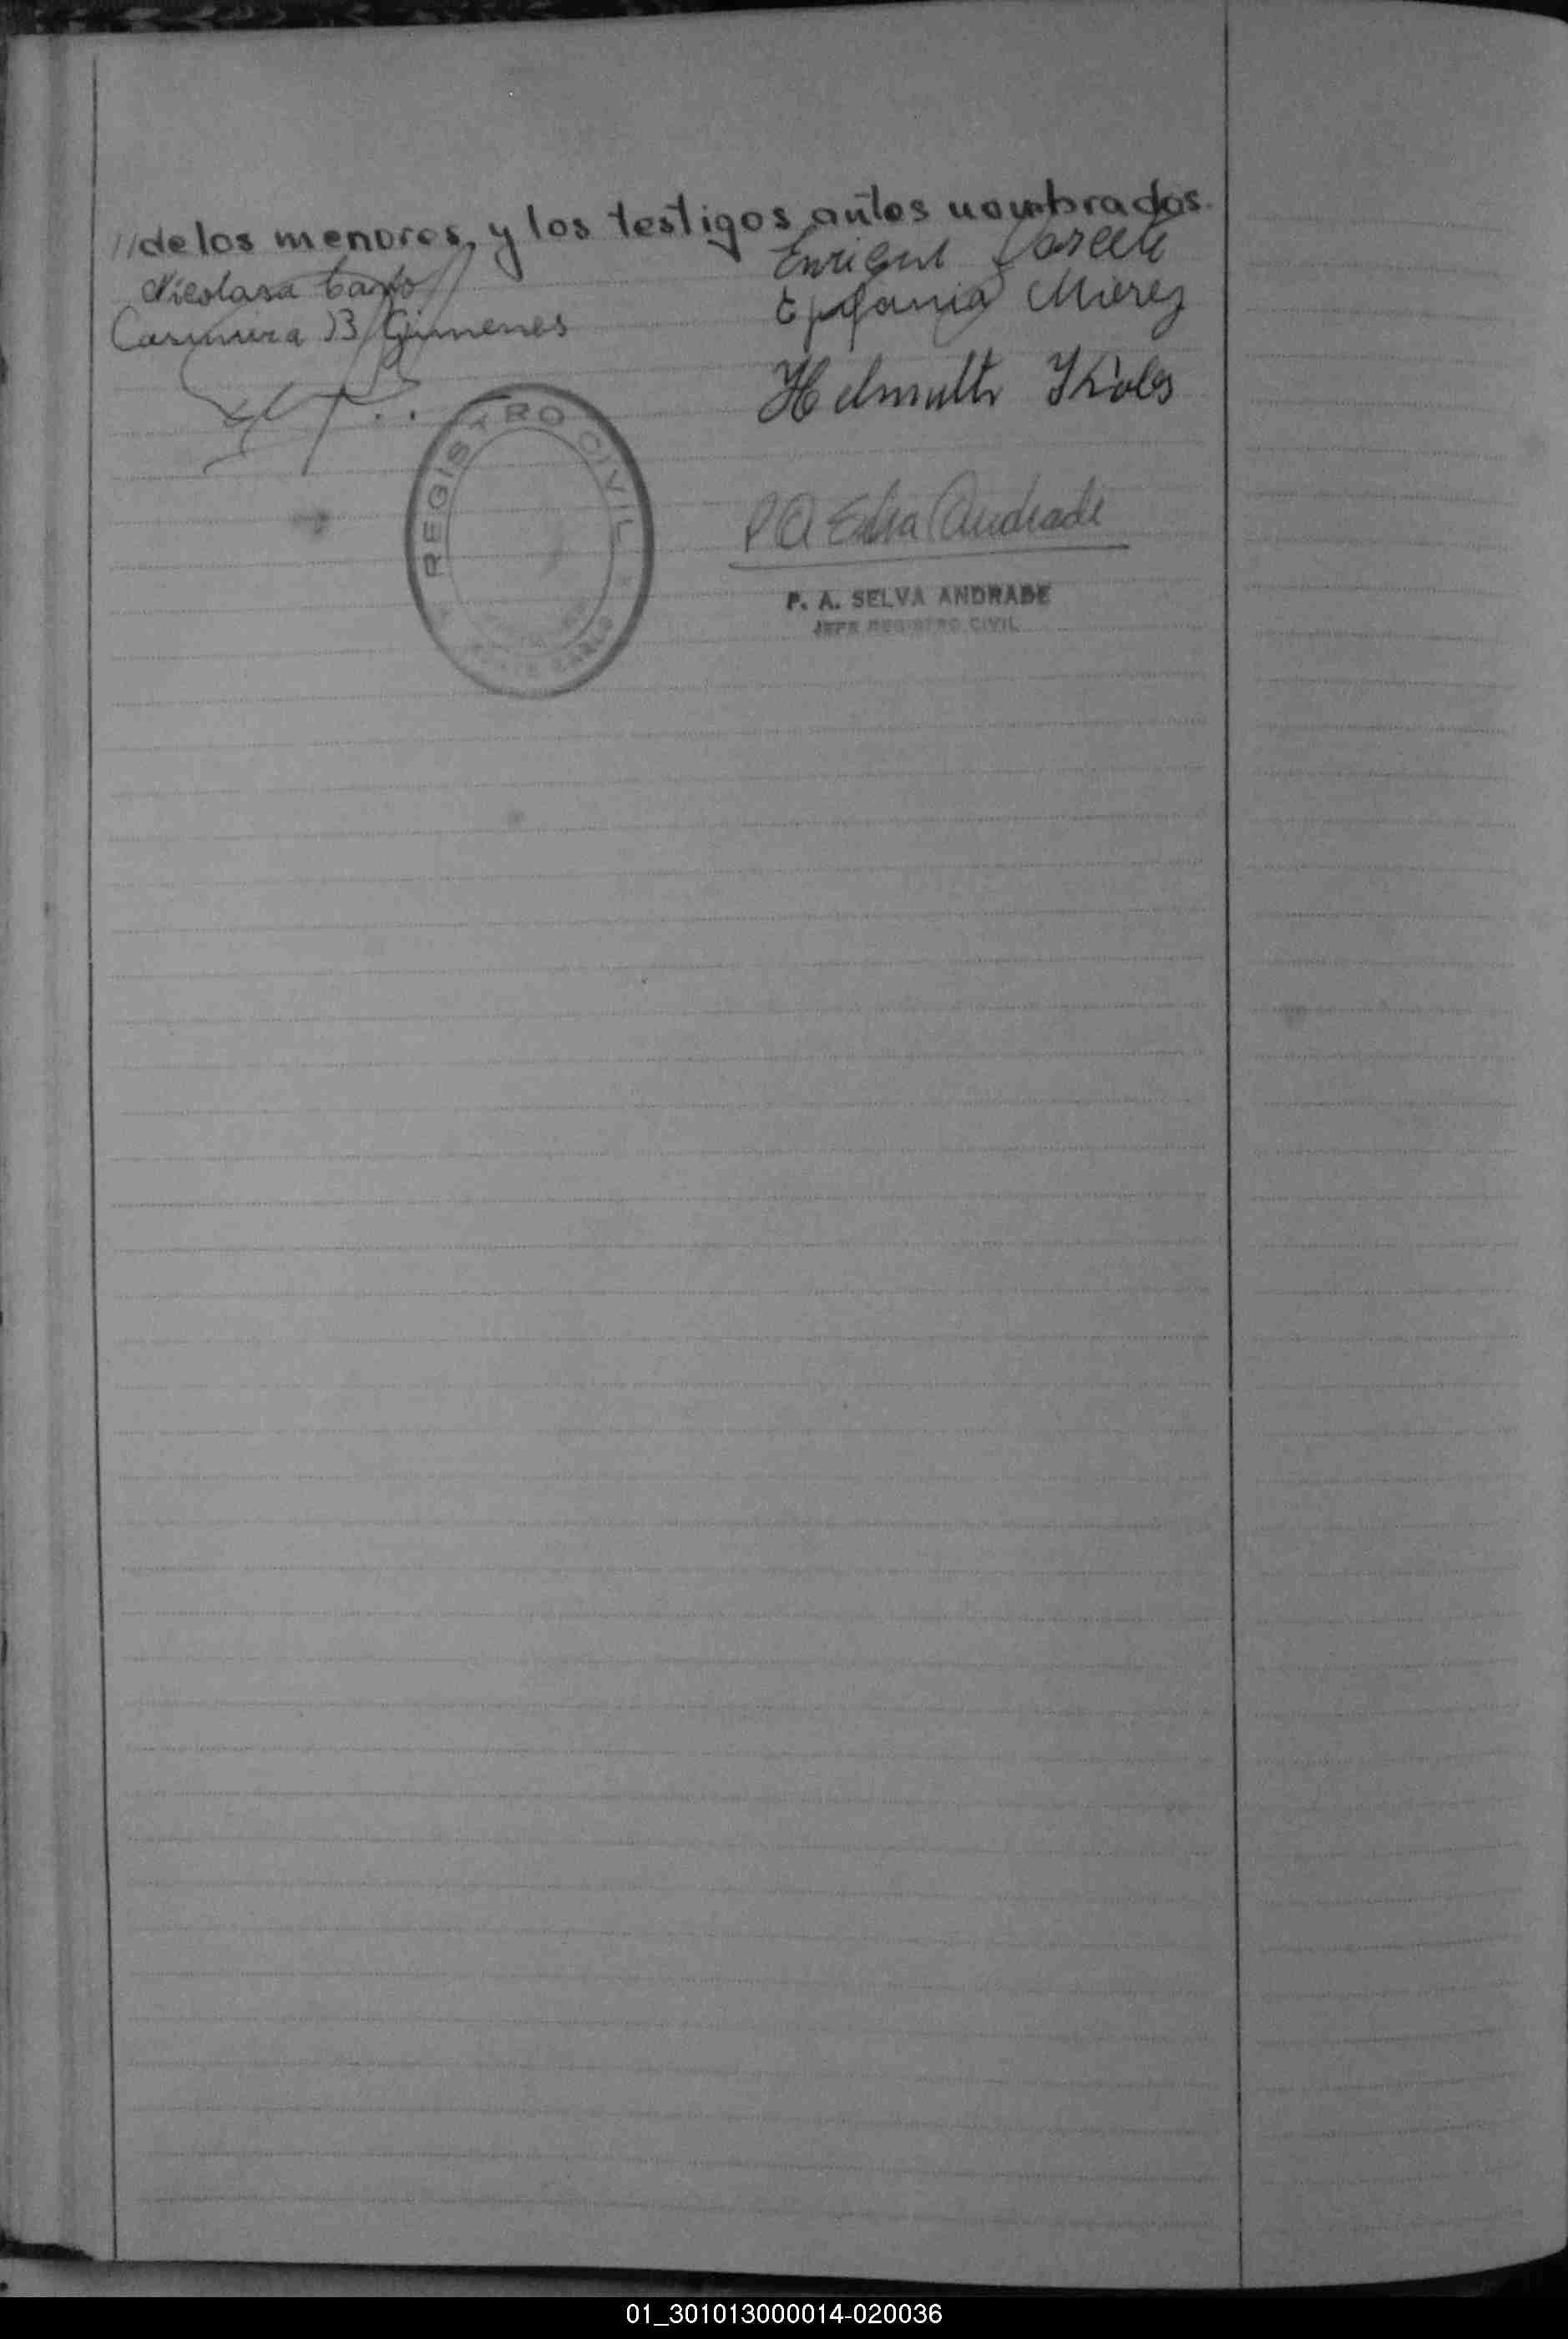 //de los menores, y los testigos antes nombrados.
Nicolasa
Casimira B Gimenes
Enrique
Epifania Mierez
Helmuth
REGISTRO CIVIL
P A Selva Andrade
P. A. SELVA ANDRADE
JEFE REGISTRO CIVIL
01_301013000014-020036